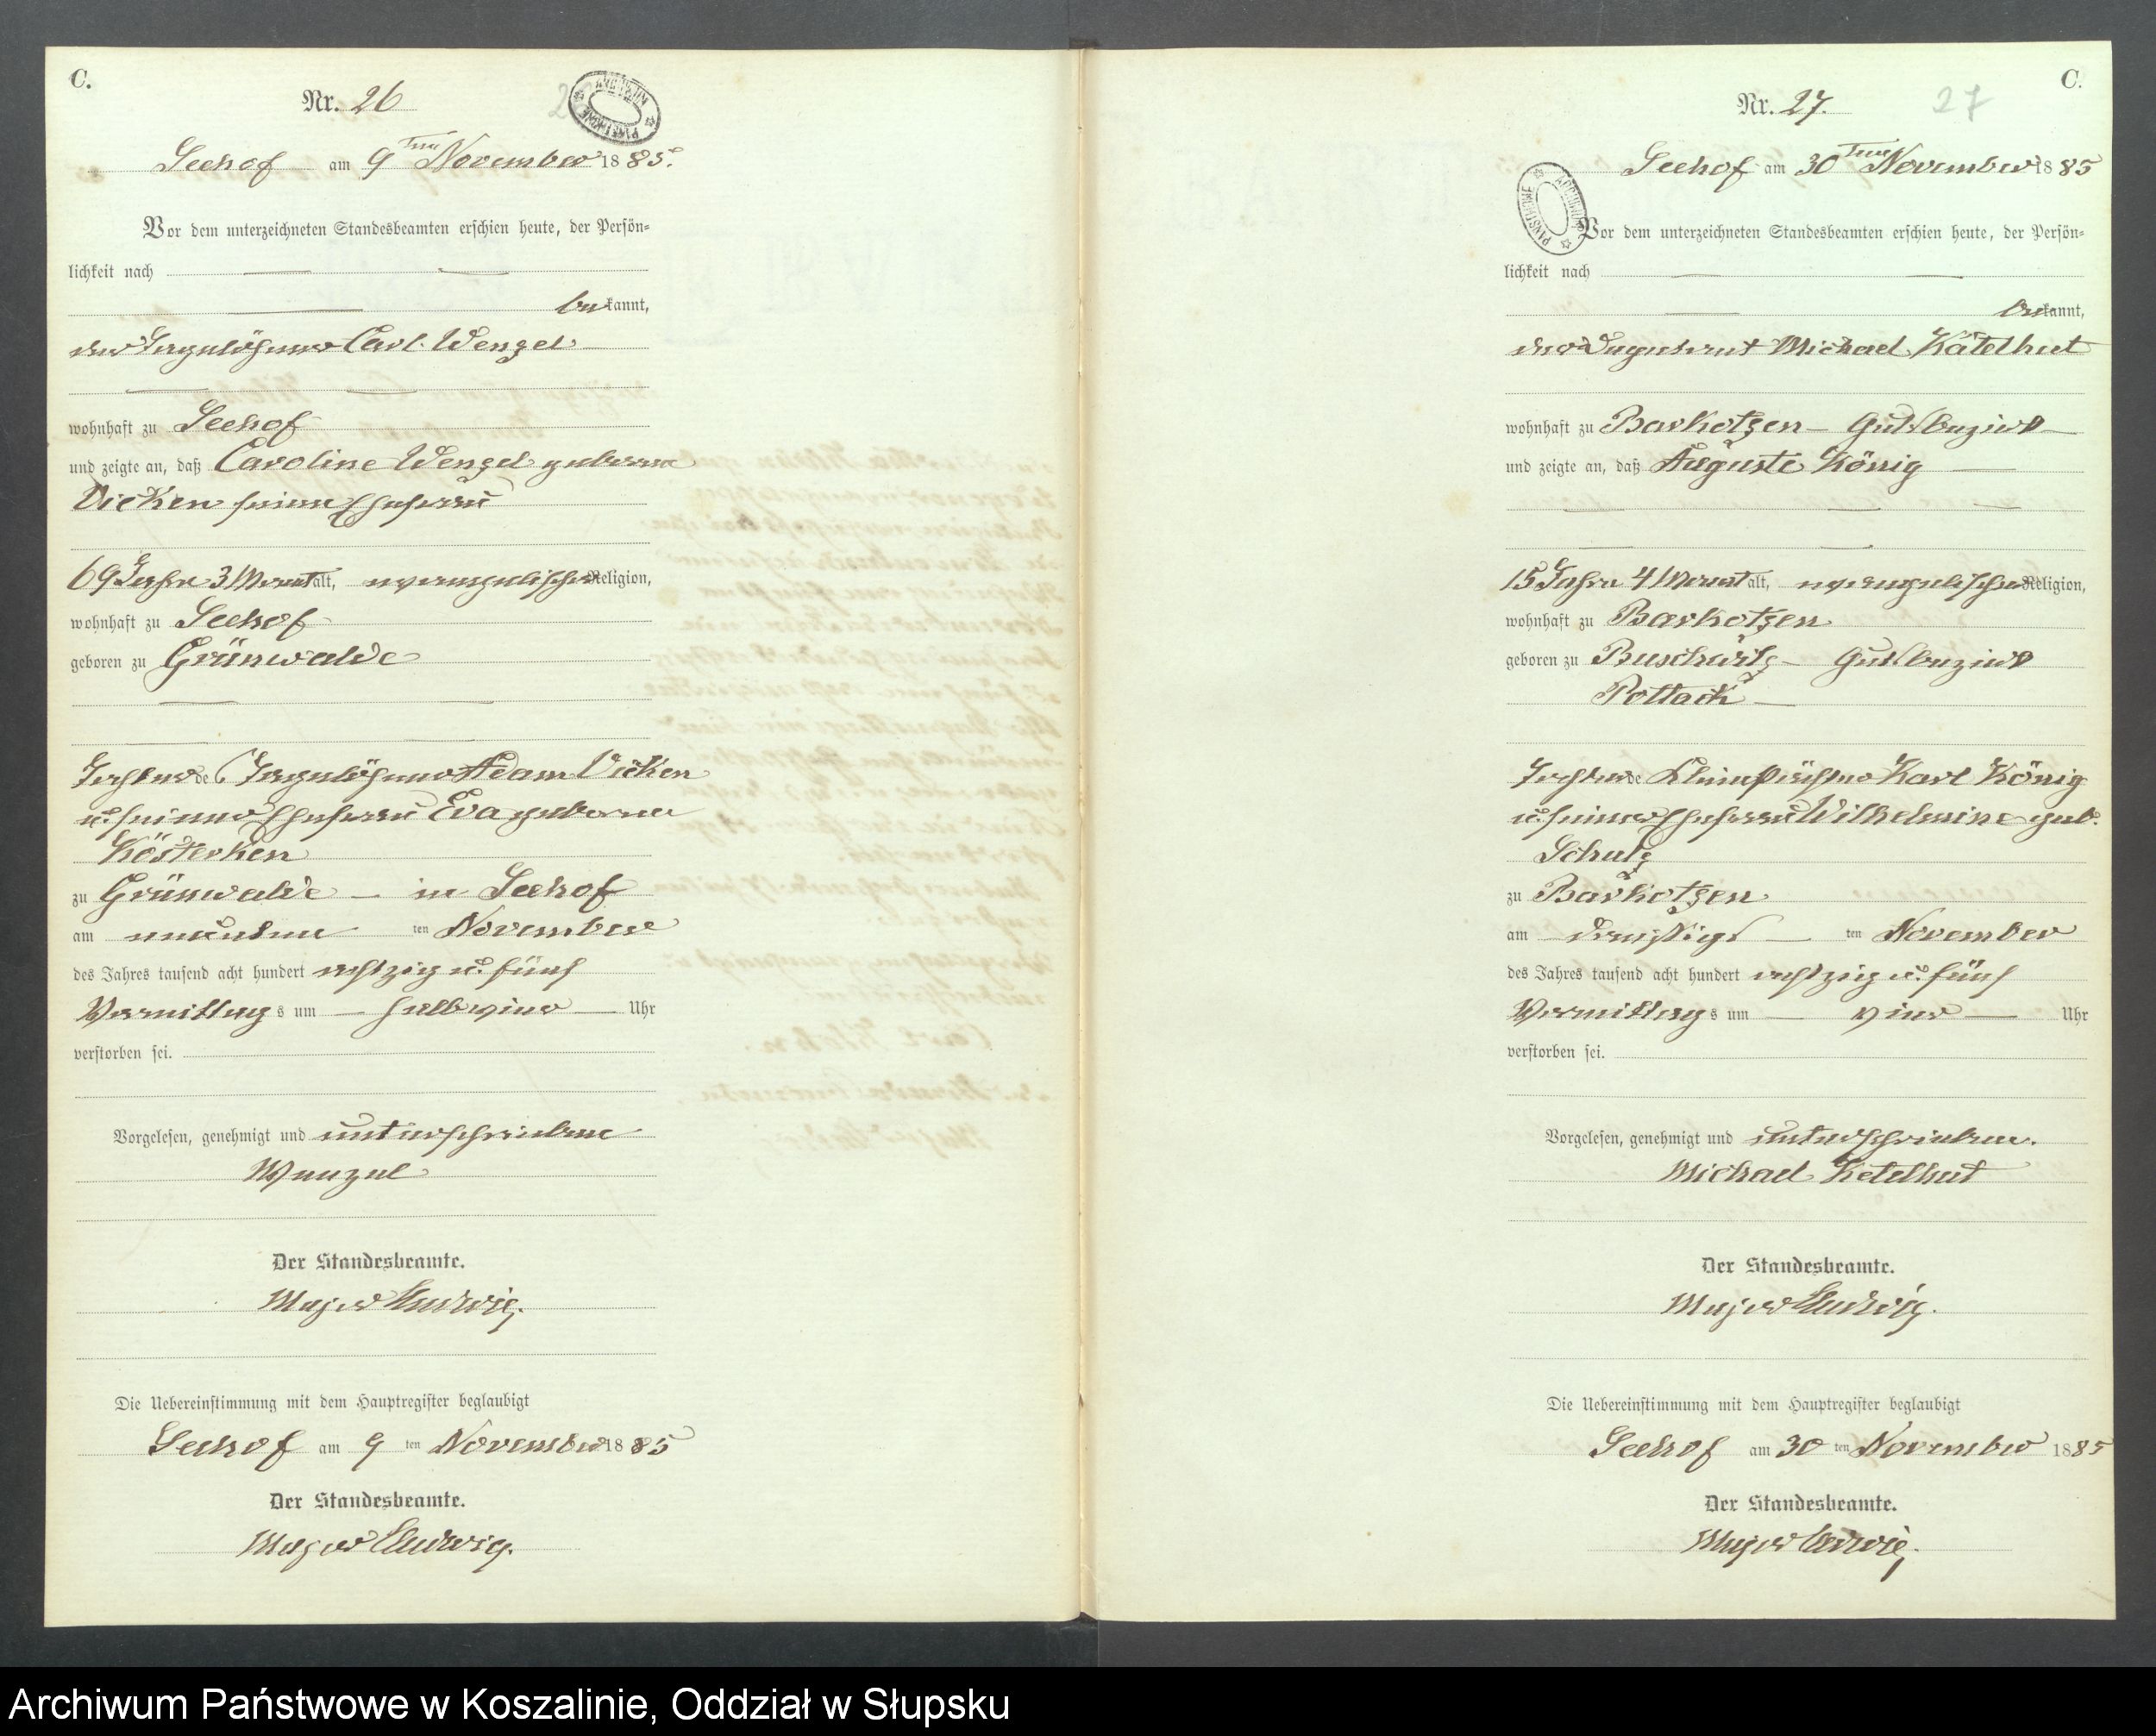 C.
Nr. 26
Seehof am 9ten November 1885.
Vor dem unterzeichneten Standesbeamten erschien heute, der Persön-
lichkeit nach
bekannt,
der Tagelöhner Carl Wenzel
wohnhaft zu Seehof
und zeigte an, daß Caroline Wenzel geborene
Vicken seine Ehefrau
69 Jahre 3 Monat alt, evangelischer Religion,
wohnhaft zu Seehof
geboren zu Grünwalde
Tochter des Tagelöhner Adam Vicken
u. seiner Ehefrau Eva geborene
Kösterken
zu Grünwalde – in Seehof
am neunten ten November
des Jahres tausend acht hundert achtzig u. fünf
Vormittags um halb vier Uhr
verstorben sei.
Vorgelesen, genehmigt und unterschrieben
Wenzel
Der Standesbeamte.
Major Ludwig.
Die Uebereinstimmung mit dem Hauptregister beglaubigt
Seehof am 9 ten November 1885
Der Standesbeamte.
Major Ludwig.
C.
Nr. 27. 27
Seehof am 30ten November 1885
ARCHIWUM PAŃSTWOWE
Vor dem unterzeichneten Standesbeamten erschien heute, der Persön-
lichkeit nach
bekannt,
der Michael Kätelhut
wohnhaft zu Barkotzen – Gutsbezirk –
und zeigte an, daß Auguste König
15 Jahre 4 Monat alt, evangelischer Religion,
wohnhaft zu Barkotzen
geboren zu Buschwitz – Gutsbezirk
Pottack –
Tochter de Karl König
u. seiner Ehefrau Wilhelmine geb.
Schulz
zu Barkotzen
am – dreißigs – ten November
des Jahres tausend acht hundert achtzig u. fünf
Vormittags um – vier – Uhr
verstorben sei.
Vorgelesen, genehmigt und unterschrieben.
Michael Ketelhut
Der Standesbeamte.
Major Ludwig.
Die Uebereinstimmung mit dem Hauptregister beglaubigt
Seehof am 30 ten November 1885
Der Standesbeamte.
Major Ludwig.
Archiwum Państwowe w Koszalinie, Oddział w Słupsku